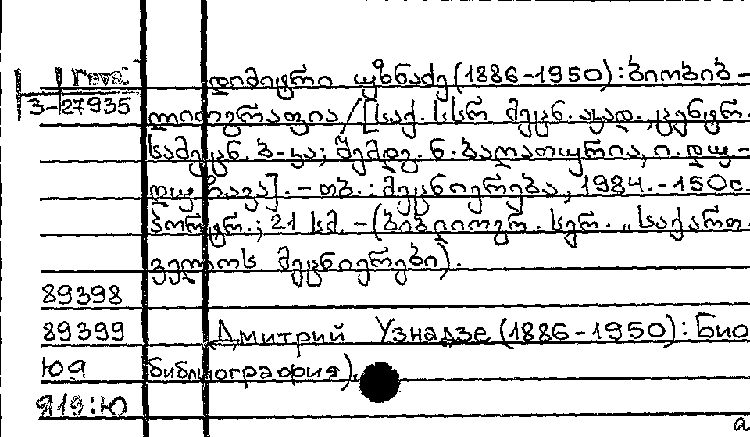 დიმიტრი უზნაძე (1886-1950): ბიობიბ-
3-27935
ლიოგრაფია / [საქ. სსრ მეცნ. აკად., ცენტრ.
სამეცნ. ბ-კა; შემდგ. ნ. ბალათურია, ი. დუ-
დუჩავა]. - თბ.: მეცნიერება, 1984. - 150с.
პორტრ.; 21 სმ. - (ბიბლიოგრ. სერ. „საქართ-
ველოს მეცნიერები).
89398
89399 Дмитрий Узнадзе (1886-1950): Био
библиография).
919: